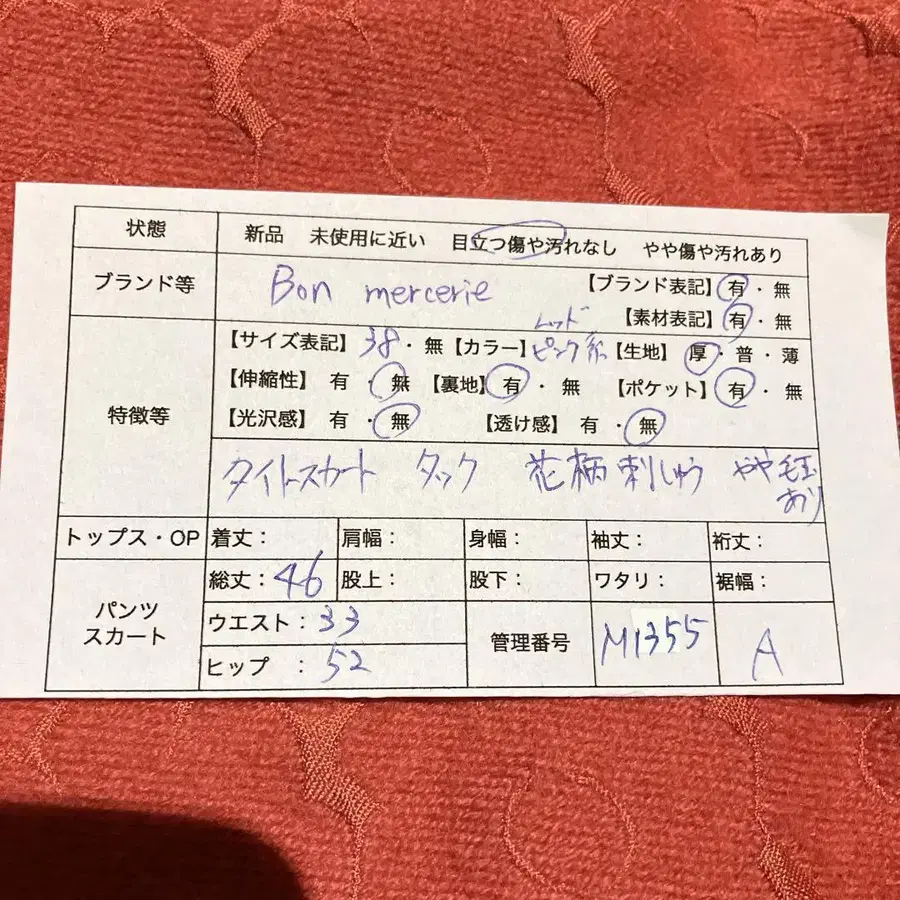 状態 新品 未使用に近い 目立つ傷や汚れなし やや傷や汚れあり
ブランド等 Bon mercerie 【ブランド表記】 有・無
【素材表記】 有・無
レッド
【サイズ表記】 38・無 【カラー】 ピンク系 【生地】 厚・普・薄
特徴等 【伸縮性】 有・無 【裏地】 有・無 【ポケット】 有・無
【光沢感】 有・無 【透け感】 有・無
タイトスカート タック 花柄刺しゅう やや毛玉
あり
トップス・OP 着丈: 肩幅: 身幅: 袖丈: 裄丈:
パンツ スカート 総丈:46 股上: 股下: ワタリ: 裾幅:
ウエスト:33 管理番号 M1355 A
ヒップ :52